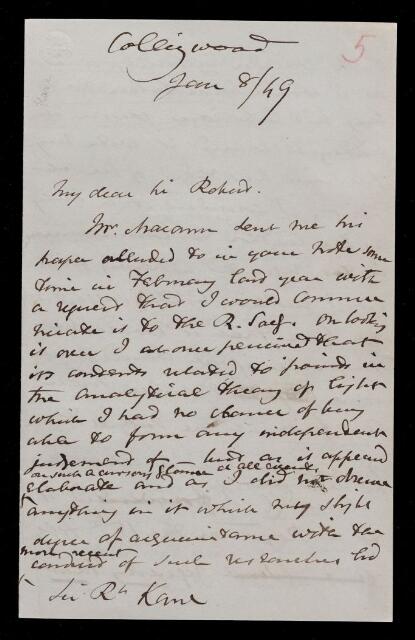 Collingwood
5
Jan 8/49
My dear Sir Robert.
Mr. Macann sent me his
paper alluded to in your note some
time in February last year with
a request that I would commu
nicate it to the R. Socy. On looking
it over I at once perceived that
its contents related to points in
the analytical theory of light
which I had no chance of being
able to form any independent
judgement of but as it appeared
on such a cursory glance at all events,
elaborate and as I did not observe
anything in it which my slight
degree of acquaintance with the
more recent
conduct of such researches led
Sir Rt Kane